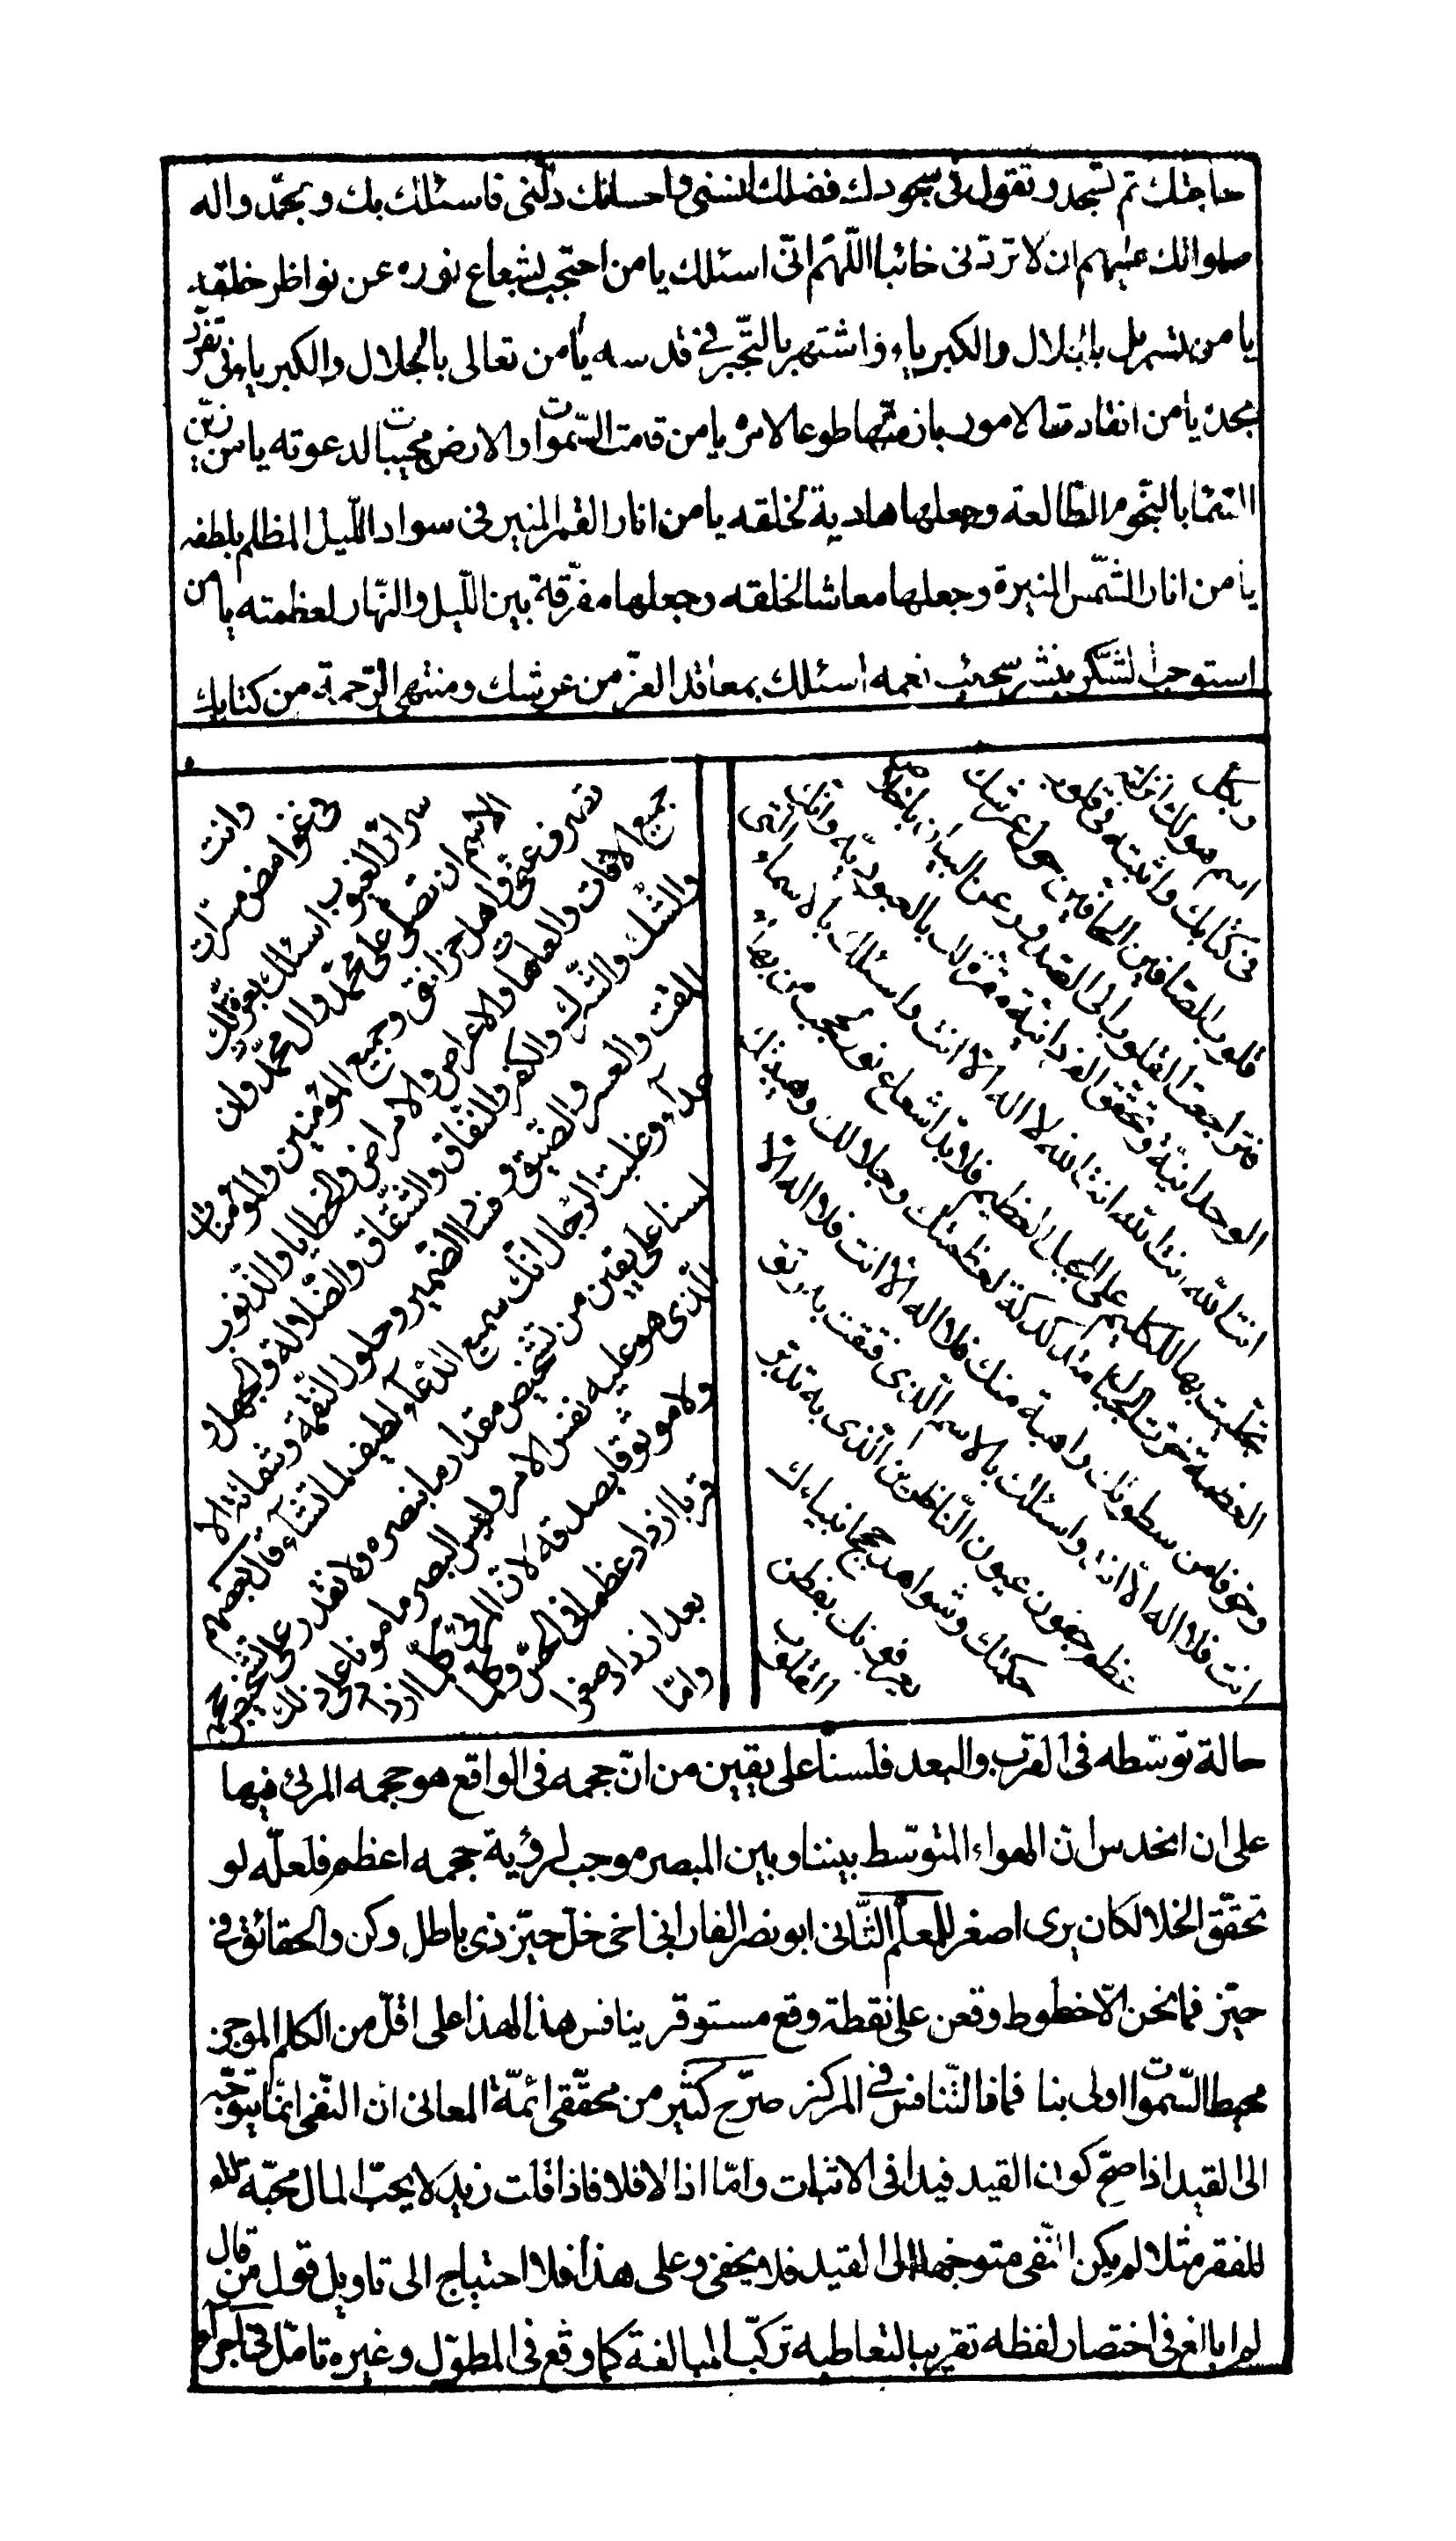 حاجتك ثم تسجد وتقول فى سجودك فضلك انسنى واحسانك دلّنى فاسئلك بك وبمحمّد واله
صلواتك عليهم ان لا تردّنى خائبا اللّهمّ انّى اسئلك يا من احتجب بشعاع نوره عن نواظر خلقه
يا من تسربل بالجلال والكبرياء واشتهر بالتّجبّر فى قدسه يا من تعالى بالجلال والكبرياء فى تفرّد
مجده يا من انقادت الامور بازمّتها طوعا لامره يا من قامت السّموات والارض مجيبات لدعوته يا من زيّن
السّماء بالنّجوم الطّالعة وجعلها هادية لخلقه يا من انار القمر المنير فى سواد اللّيل المظلم بلطفه
يا من انار الشّمس المنيرة وجعلها معاشا لخلقه وجعلها مفرّقة بين اللّيل والنّهار لعظمته يا من
استوجب الشّكر بنشر سحائب نعمه اسئلك بمعاقد العزّ من عرشك ومنتهى الرّحمة من كتابك
وبكل
اسم هو لك
فى كتابك واثبتّه فى قلوب
قلوب الصّافّين الحافّين حول عرشك
فتراجعت القلوب الى الصّدور عن البيان باخلاص
الوحدانيّة وتحقّق الفردانيّة مقرّة لك بالعبوديّة وانّك
انت اللّه انت اللّه انت اللّه لا اله الّا انت واسئلك بالاسماء الّتى
تجلّيت بها للكليم على الجبل العظيم فلمّا بدا شعاع نور الحجب من بهاء
العظمة خرّت الجبال متدكدكة لعظمتك وجلالك وهيبتك
وخوفا من سطوتك راهبة منك فلا اله الّا انت فلا اله الّا
انت فلا اله الّا انت واسئلك بالاسم الّذى فتقت به رتق
عظيم جفون عيون النّاظرين الّذى به تدبّر
حكمتك وشواهد حجج انبيائك
يعرفونك بفطن
القلوب
وانت
فى غوامض مسرّات
سرائر الغيوب اسئلك بعزّة ذلك
الاسم ان تصلّى على محمّد وال محمّد وان
تصرف عنّى واهل حزانتى وجميع المؤمنين والمؤمنات
جميع الافات والعاهات والاعراض والامراض والخطايا والذّنوب
والشّكّ والشّرك والكفر والنّفاق والشّقاق والضّلالة والجهل و
المقت والعسر والضّيق وفساد الضّمير وحلول النّقمة وشماتة الا
عداء وغلبة الرّجال انّك سميع الدّعاء لطيف لما تشاء قال بعضهم
لسنا على يقين من تشخيص مقدار ما نبصره ولا نقدر على تشخيص حجمه
الّذى هو عليه نفس الامر وليس البصر مامونا على ذلك
ولا موثوقا بصدقه لانّ المرئى كلّما ازداد
قربا ازداد عظما فى الحسّ وكلّما
بعد ازداد صغرا
وامّا
حالة توسّطه فى القرب والبعد فلسنا على يقين من انّ حجمه فى الواقع هو حجمه المرئى فيها
على ان انحدس انّ الهواء المتوسّط بيننا وبين المبصر موجب لرؤية حجمه اعظم فلعلّه لو
تحقّق الخلا لكان يرى اصغر للمعلّم الثّانى ابو نصر الفارابى اخى خلّ حيّز ذى باطل وكن والحقائق فى
حيّز فما نحن الّا خطوط وقعن على نقطة وقع مستوفز ينافس هذا لهذا على اقلّ من الكلم الموجز
محيط السّموات اولى بنا فماذا التّنافس فى المركز صرّح كثير من محقّقى ائمّة المعانى انّ النّفى انّما يتوجّه
الى القيد اذا صحّ كون القيد قيدا فى الاثبات وامّا اذا لا فلا فاذا قلت زيد لا يحبّ المال محبّة
للفقر مثلا لم يكن النّفى متوجّها الى القيد فلا يخفى وعلى هذا فلا احتياج الى تاويل قول من قال
لم ابالغ فى اختصار لفظه تقريبا لتعاطيه تركّب المبالغة كما وقع فى المطوّل وغيره تامّل